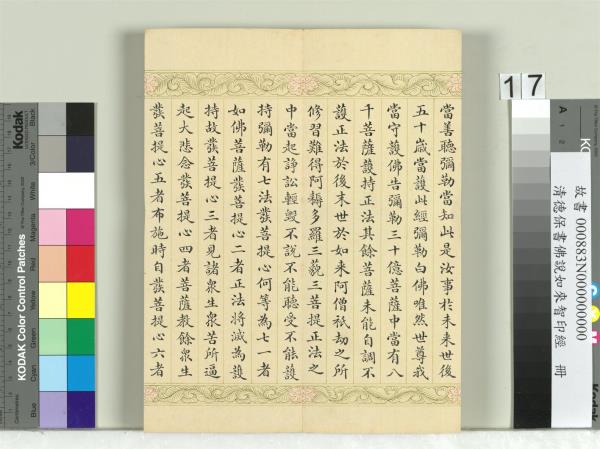 當善聽彌勒當知此是汝事於未來世後
五十歲當護此經彌勒白佛唯然世尊我
當守護佛告彌勒三十億菩薩中當有八
千菩薩護持正法其餘菩薩未能自調不
護正法於後末世於如來阿僧祇劫之所
修習難得阿耨多羅三藐三菩提正法之
中當起諍訟輕毀不說不能聽受不能護
持彌勒有七法發菩提心何等為七一者
如佛菩薩發菩提心二者正法將滅為護
持故發菩提心三者見諸衆生衆苦所逼
起大悲念發菩提心四者菩薩教餘衆生
發菩提心五者布施時自發菩提心六者
17
故書 000883N000000000
清德保書佛說如來智印經 冊
A 1 2
KODAK Color Control Patches
Kodak
Blue
Cyan
Green
Yellow
Red
Magenta
White
3/Color
Black